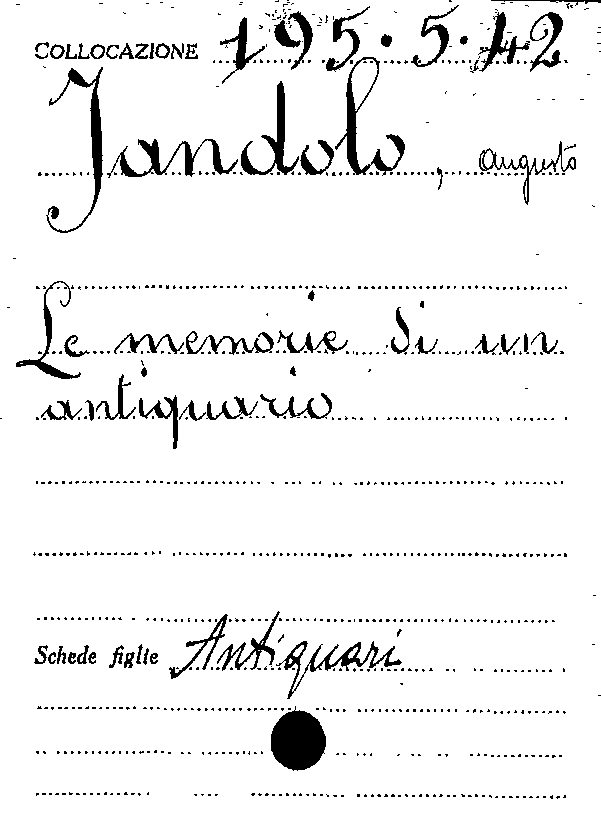 COLLOCAZIONE 195.5.42
Jandolo, Augusto
Le memorie di un
antiquario
Schede figlie Antiquari